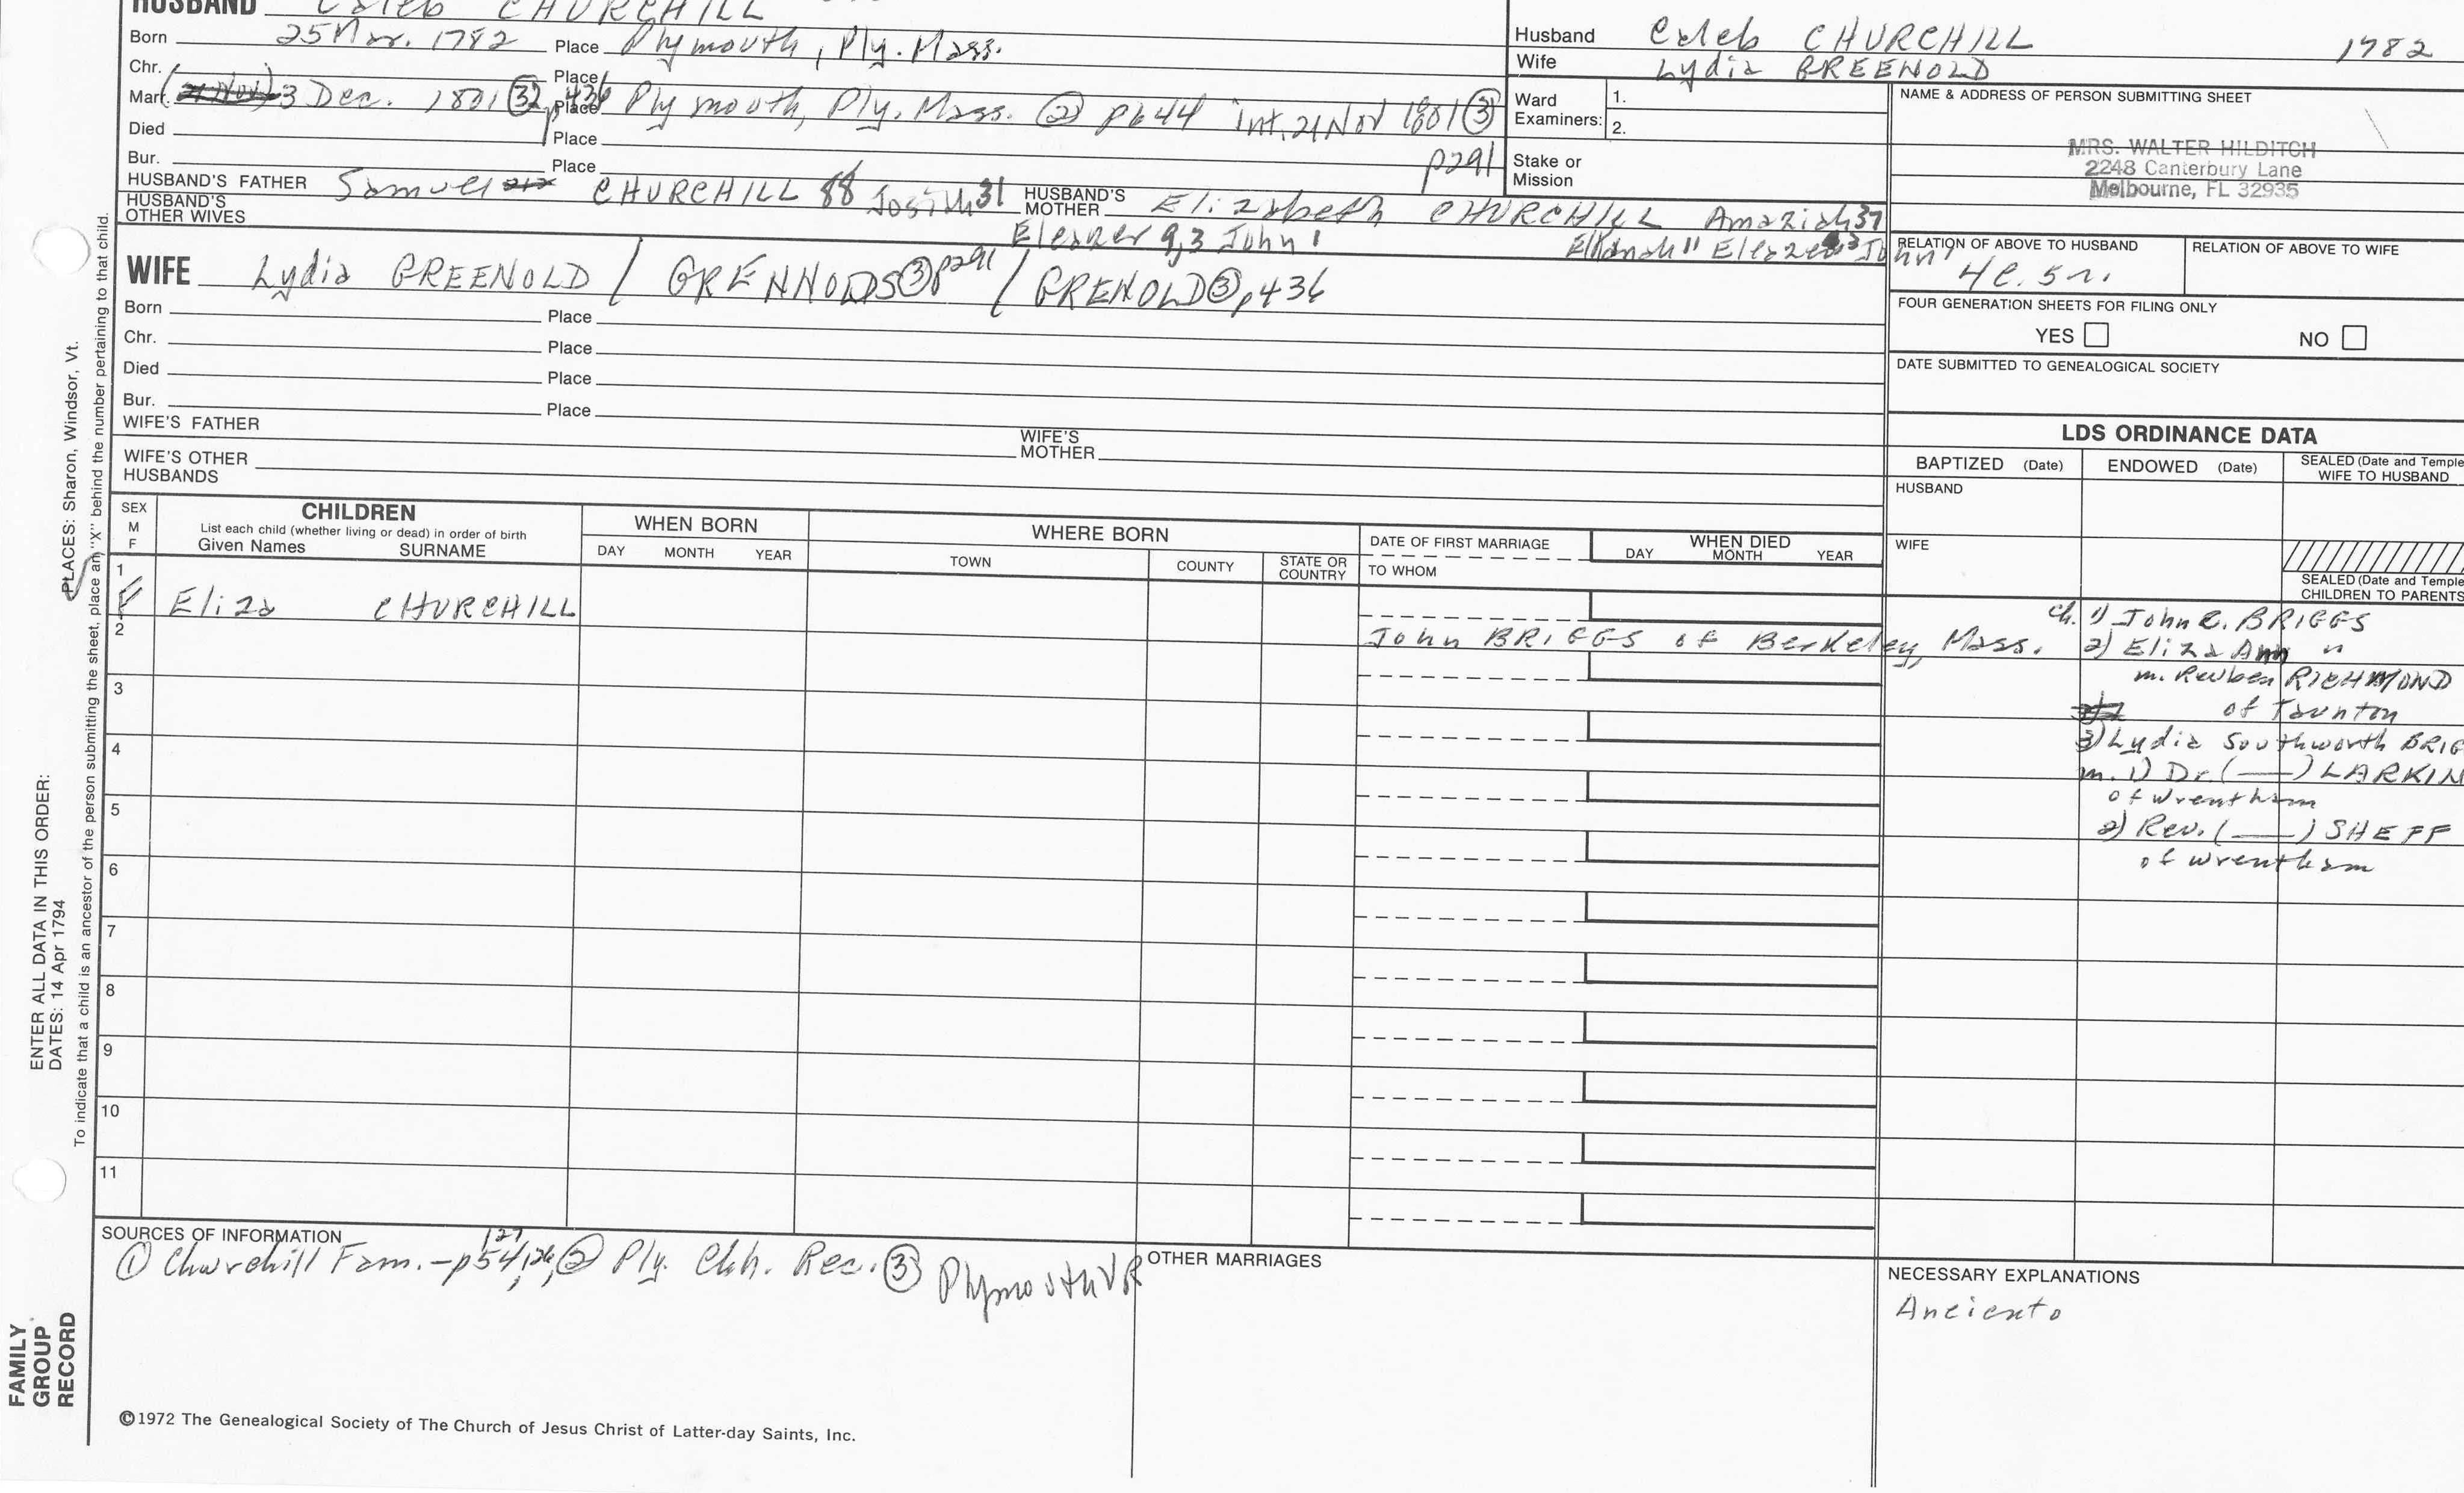 HUSBAND Caleb CHURCHILL
Born 25 Mar. 1782 Place Plymouth, Ply. Mass.
Chr. Place
Marr. (21 Nov) 3 Dec. 1801 ③ p436 Place Plymouth, Ply. Mass. ② p644 int. 21 Nov 1801 ③ p291
Died Place
Bur. Place
HUSBAND'S FATHER Samuel CHURCHILL 88 Josiah 31 HUSBAND'S MOTHER Elizabeth CHURCHILL Amaziah 37
HUSBAND'S OTHER WIVES
Eleazer 9,3 John 1 Elkanah 11 Eleazer 3 John 1
WIFE Lydia GREENOLD / GRENNODS ③ p291 / GRENOLD ③ p436
Born Place
Chr. Place
Died Place
Bur. Place
WIFE'S FATHER WIFE'S MOTHER
WIFE'S OTHER HUSBANDS
Husband Caleb CHURCHILL 1782
Wife Lydia GREENOLD
Ward Examiners: 1.
2.
Stake or Mission
NAME & ADDRESS OF PERSON SUBMITTING SHEET
MRS. WALTER HILDITCH
2248 Canterbury Lane
Melbourne, FL 32935
RELATION OF ABOVE TO HUSBAND RELATION OF ABOVE TO WIFE
4c. 5r.
FOUR GENERATION SHEETS FOR FILING ONLY
YES NO
DATE SUBMITTED TO GENEALOGICAL SOCIETY
LDS ORDINANCE DATA
BAPTIZED (Date) ENDOWED (Date) SEALED (Date and Temple
WIFE TO HUSBAND
HUSBAND
WIFE
SEALED (Date and Temple
CHILDREN TO PARENTS
SEX
M
F
CHILDREN
List each child (whether living or dead) in order of birth
Given Names SURNAME
WHEN BORN
DAY MONTH YEAR
WHERE BORN
TOWN COUNTY STATE OR COUNTRY
DATE OF FIRST MARRIAGE
TO WHOM
WHEN DIED
DAY MONTH YEAR
1
F Eliza CHURCHILL
John BRIGGS of Berkeley, Mass.
ch. 1) John C. BRIGGS
2) Eliza Ann "
m. Reuben RICHMOND
of Taunton
3) Lydia Southworth BRIG
m. 1) Dr. (——) LARKIN
of Wrentham
2) Rev. (——) SHEFF
of Wrentham
2
3
4
5
6
7
8
9
10
11
SOURCES OF INFORMATION
① Churchill Fam. - p54, 126, 127 ② Ply. Chh. Rec. ③ Plymouth VR
OTHER MARRIAGES
NECESSARY EXPLANATIONS
Ancients
©1972 The Genealogical Society of The Church of Jesus Christ of Latter-day Saints, Inc.
PLACES: Sharon, Windsor, Vt.
To indicate that a child is an ancestor of the person submitting the sheet, place an "X" behind the number pertaining to that child.
ENTER ALL DATA IN THIS ORDER:
DATES: 14 Apr 1794
FAMILY
GROUP
RECORD